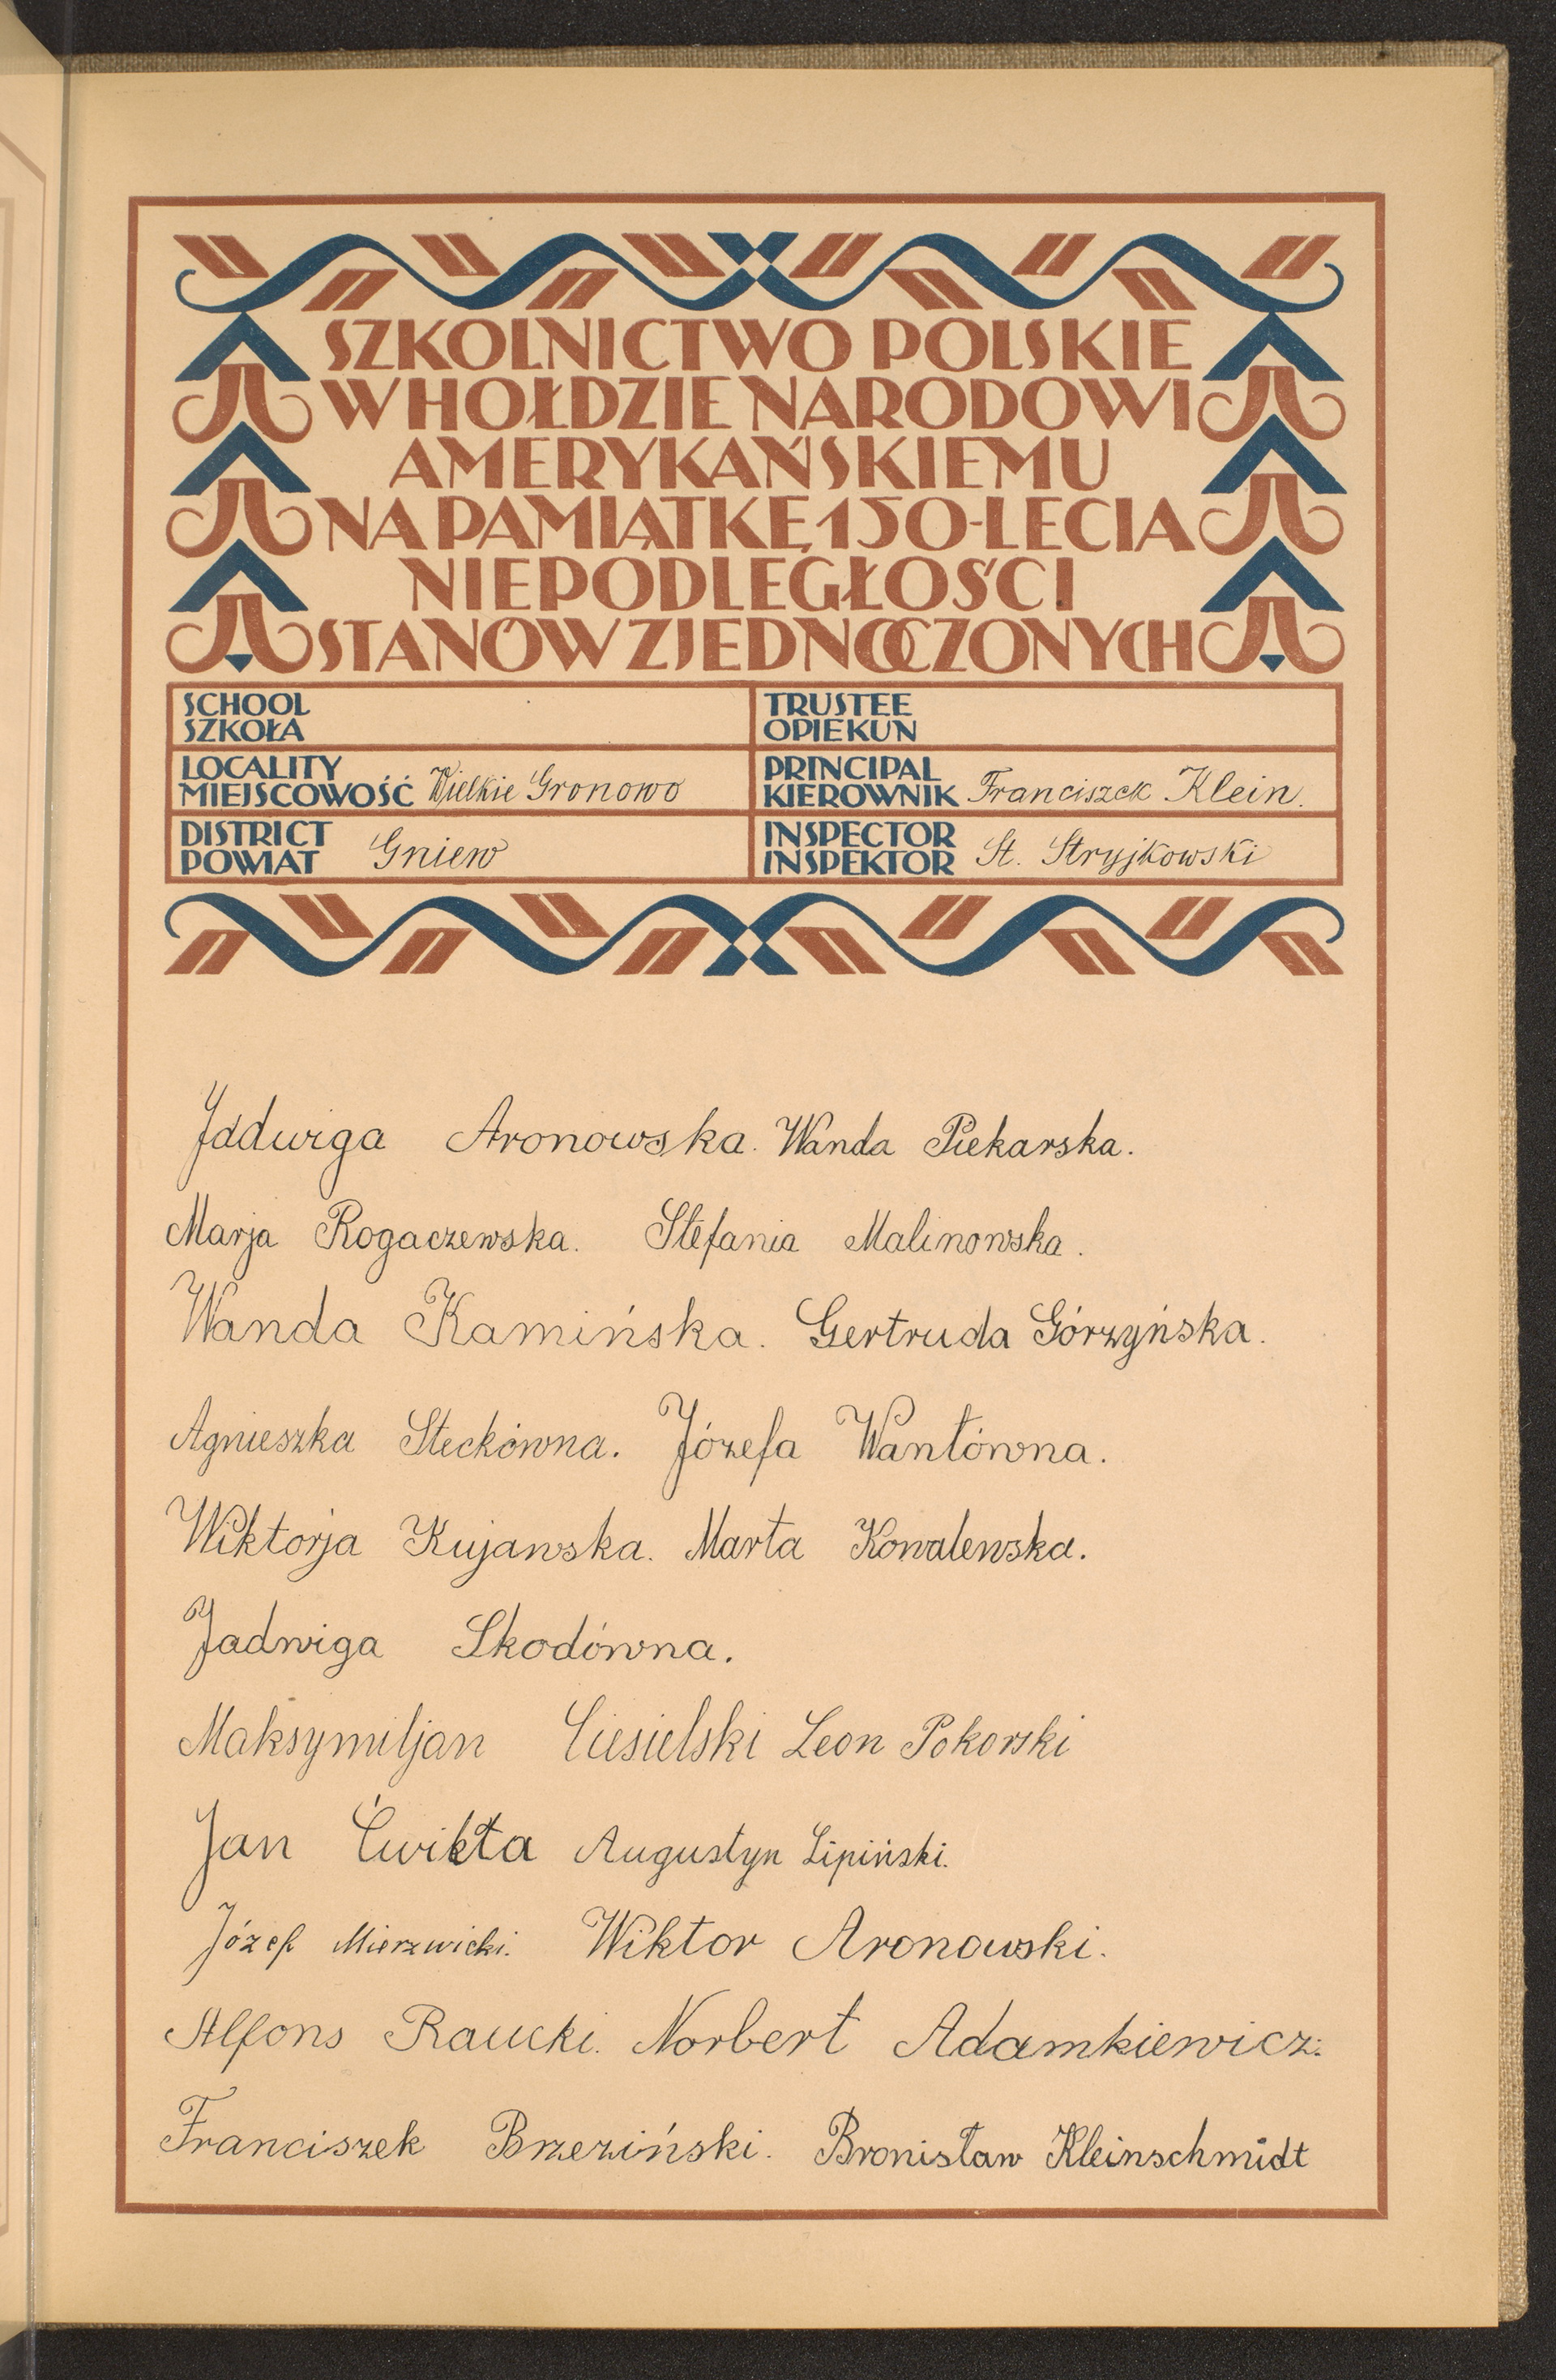 SZKOLNICTWO POLSKIE
W HOŁDZIE NARODOWI
AMERYKAŃSKIEMU
NA PAMIĄTKĘ 150-LECIA
NIEPODLEGŁOŚCI
STANÓW ZJEDNOCZONYCH
SCHOOL
SZKOŁA
TRUSTEE
OPIEKUN
LOCALITY
MIEJSCOWOŚĆ Wielkie Gronowo
PRINCIPAL
KIEROWNIK Franciszek Klein.
DISTRICT
POWIAT Gniew
INSPECTOR
INSPEKTOR St. Stryjkowski
Jadwiga Aronowska. Wanda Piekarska.
Marja Rogaczewska. Stefania Malinowska.
Wanda Kamińska. Gertruda Górzyńska.
Agnieszka Steckówna. Józefa Wantówna.
Wiktorja Kujawska. Marta Kowalewska.
Jadwiga Skodówna.
Maksymiljan Ciesielski Leon Pokorski
Jan Ćwikła Augustyn Lipiński.
Józef Mierzwicki. Wiktor Aronowski.
Alfons Raucki. Norbert Adamkiewicz.
Franciszek Brzeziński. Bronisław Kleinschmidt